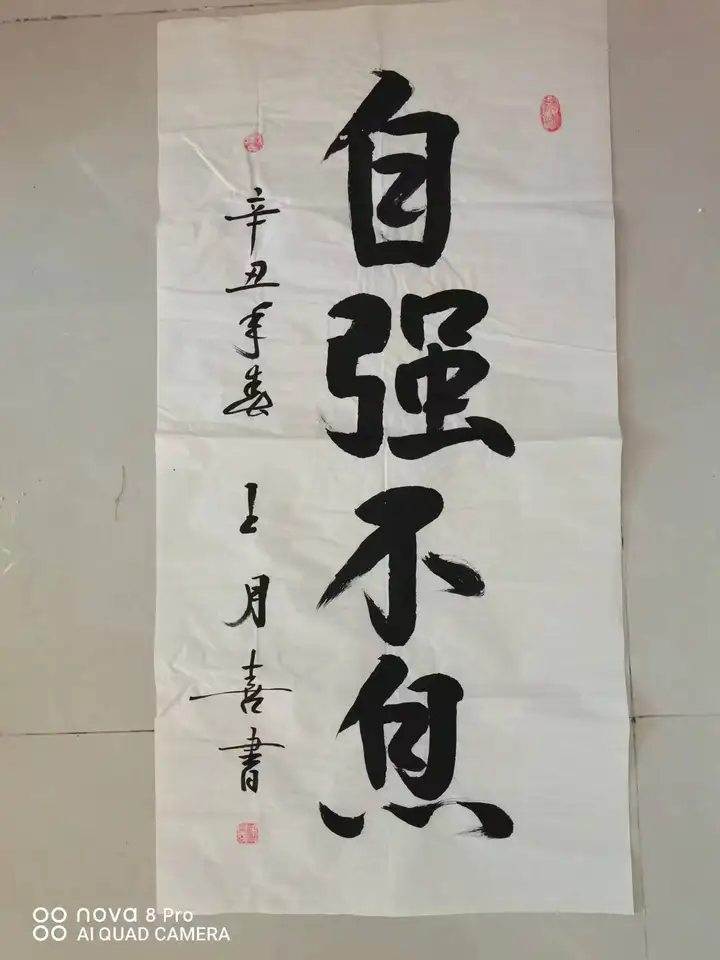 自强不息
辛丑年春 王月喜書
nova 8 Pro
AI QUAD CAMERA